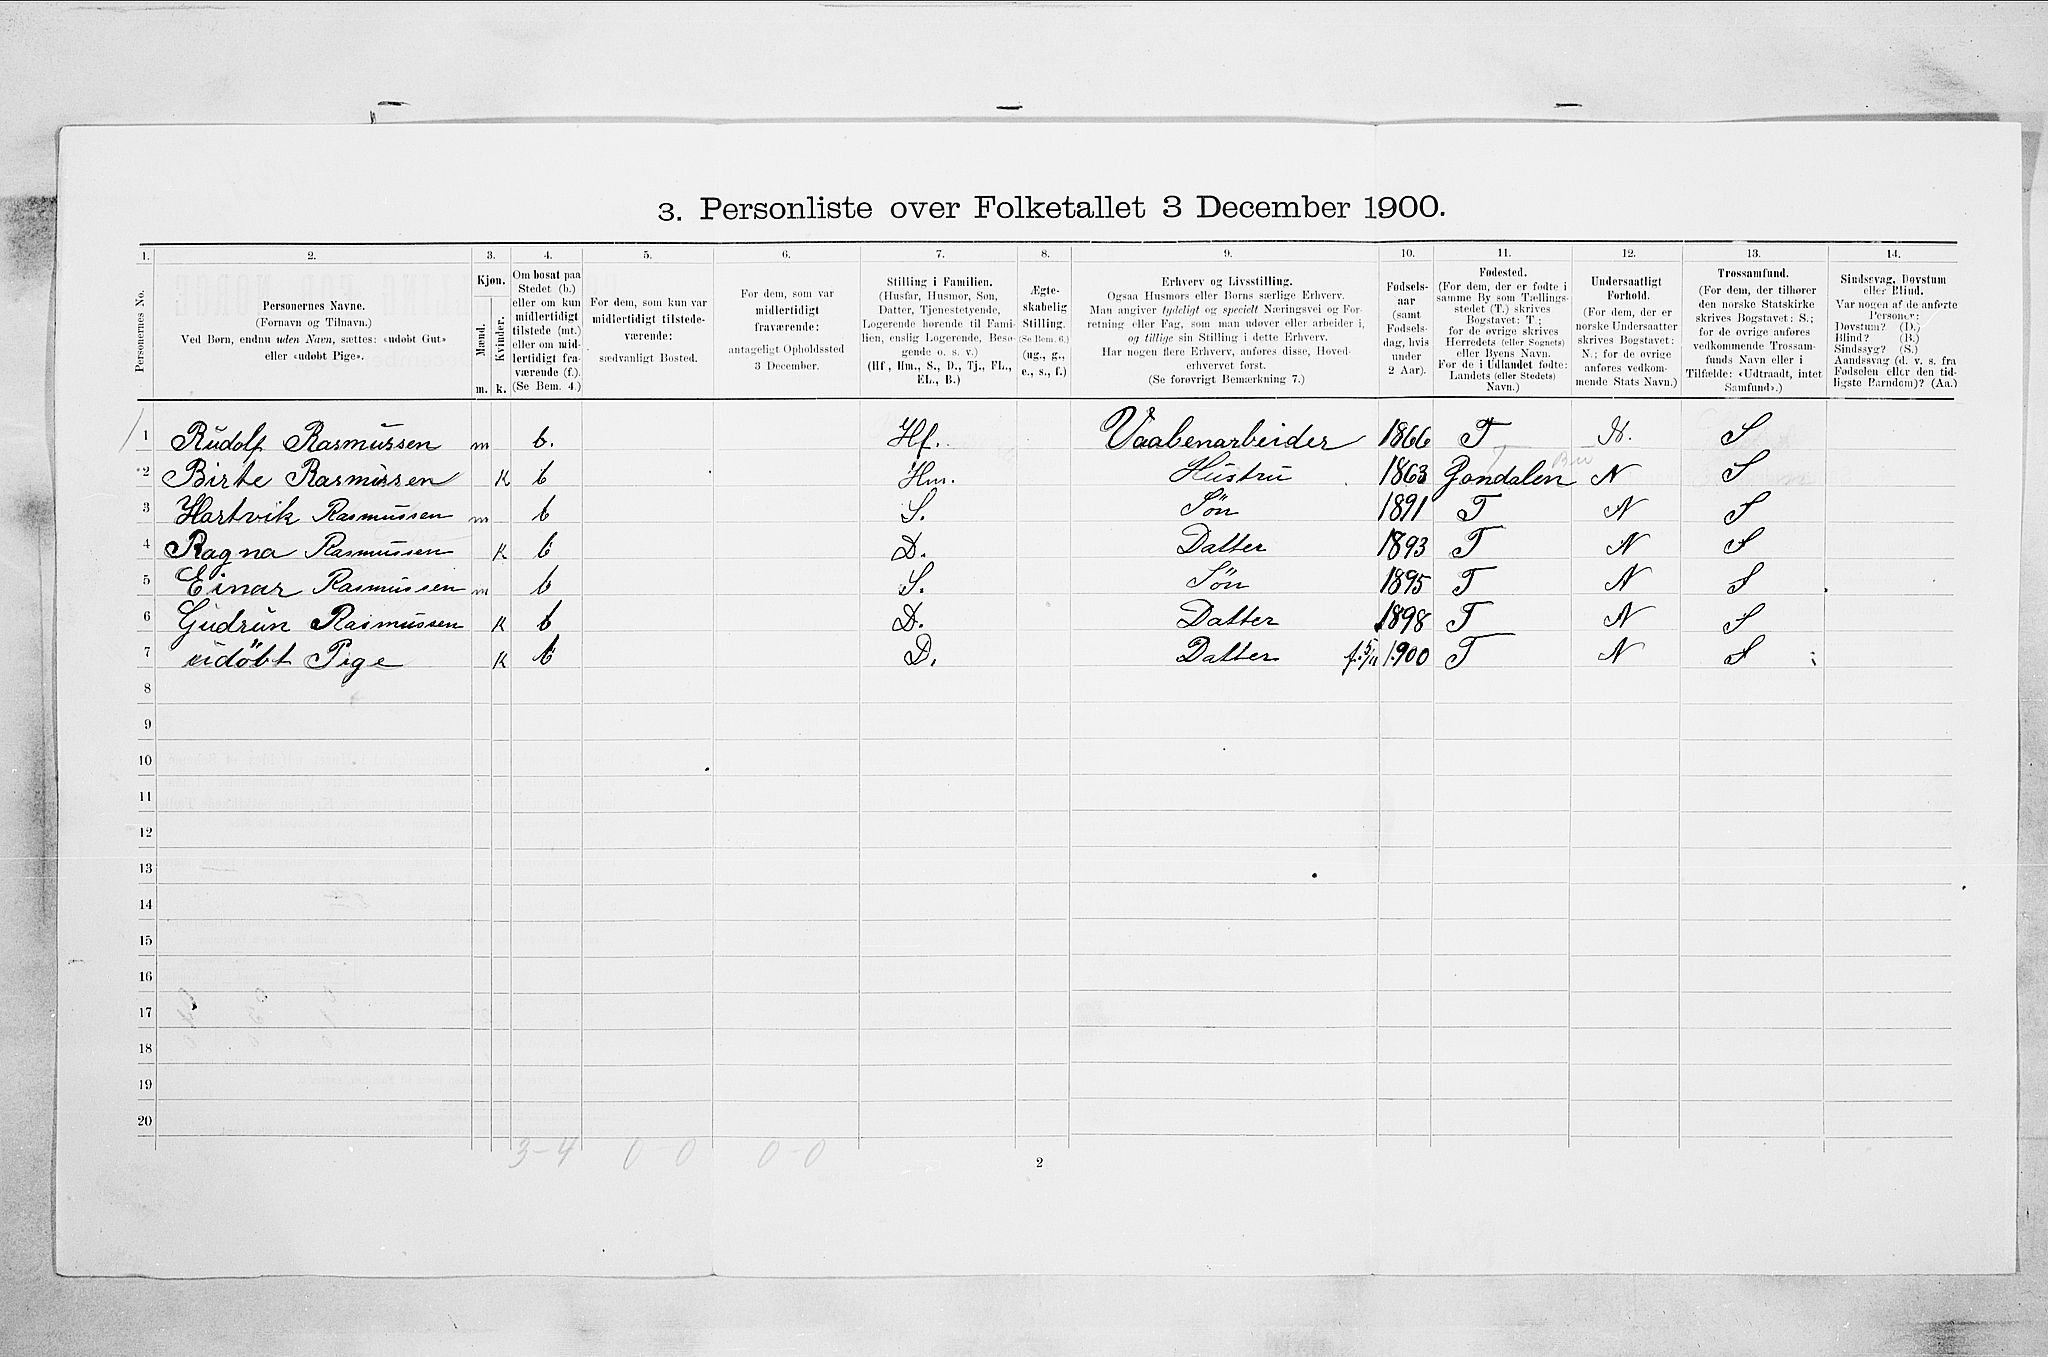 3. Personliste over Folketallet 3 December 1900.
1. 2. 3. 4. 5. 6. 7. 8. 9. 10. 11. 12. 13. 14.
Personernes No.
Personernes Navne.
(Fornavn og Tilnavn.)
Ved Børn, endnu uden Navn, sættes: «udøbt Gut»
eller «udøbt Pige».
Kjøn.
Mænd.
Kvinder.
m. k.
Om bosat paa
Stedet (b.)
eller om kun
midlertidigt
tilstede (mt.)
eller om mid-
lertidigt fra-
værende (f.).
(Se Bem. 4.)
For dem, som kun var
midlertidigt tilstede-
værende:
sædvanligt Bosted.
For dem, som var
midlertidigt
fraværende:
antageligt Opholdssted
3 December.
Stilling i Familien.
(Husfar, Husmor, Søn,
Datter, Tjenestetyende,
Logerende hørende til Fami-
lien, enslig Logerende, Besø-
gende o. s. v.)
(Hf., Hm., S., D., Tj., FL.,
EL., B.)
Ægte-
skabelig
Stilling.
(Se Bem. 6.)
(ug., g.,
e., s., f.)
Erhverv og Livsstilling.
Ogsaa Husmors eller Børns særlige Erhverv.
Man angiver tydeligt og specielt Næringsvei og For-
retning eller Fag, som man udøver eller arbeider i,
og tillige sin Stilling i dette Erhverv.
Har nogen flere Erhverv, anføres disse, Hoved-
erhvervet først.
(Se forøvrigt Bemærkning 7.)
Fødsels-
aar
(samt
Fødsels-
dag, hvis
under
2 Aar).
Fødested.
(For dem, der er fødte i
samme By som Tællings-
stedet (T.) skrives
Bogstavet: T.;
for de øvrige skrives
Herredets (eller Sognets)
eller Byens Navn.
For de i Udlandet fødte:
Landets (eller Stedets)
Navn.)
Undersaatligt
Forhold.
(For dem, der er
norske Undersaatter
skrives Bogstavet:
N.; for de øvrige
anføres vedkom-
mende Stats Navn.)
Trossamfund.
(For dem, der tilhører
den norske Statskirke
skrives Bogstavet: S.;
for de øvrige anføres
vedkommende Trossam-
funds Navn eller i
Tilfælde: «Udtraadt, intet
Samfund».)
Sindssvag, Døvstum
eller Blind.
Var nogen af de anførte
Personer:
Døvstum? (D.)
Blind? (B.)
Sindssyg? (S.)
Aandssvag (d. v. s. fra
Fødselen eller den tid-
ligste Barndom)? (Aa.)
1 Rudolf Rasmussen m b. Hf. Vaabenarbeider 1866 T N. S
2 Birte Rasmussen K b Hm. Hustru 1863 Jondalen N S
3 Hartvik Rasmussen m b S. Søn 1891 T N S
4 Ragna Rasmussen K b D. Datter 1893 T N S
5 Einar Rasmussen m b S. Søn 1895 T N S
6 Gudrun Rasmussen K b D. Datter 1898 T N S
7 udøbt Pige K b D. Datter f. 5/11 1900 T N S
8
9
10
11
12
13
14
15
16
17
18
19
20
3-4 0-0 0-0
2